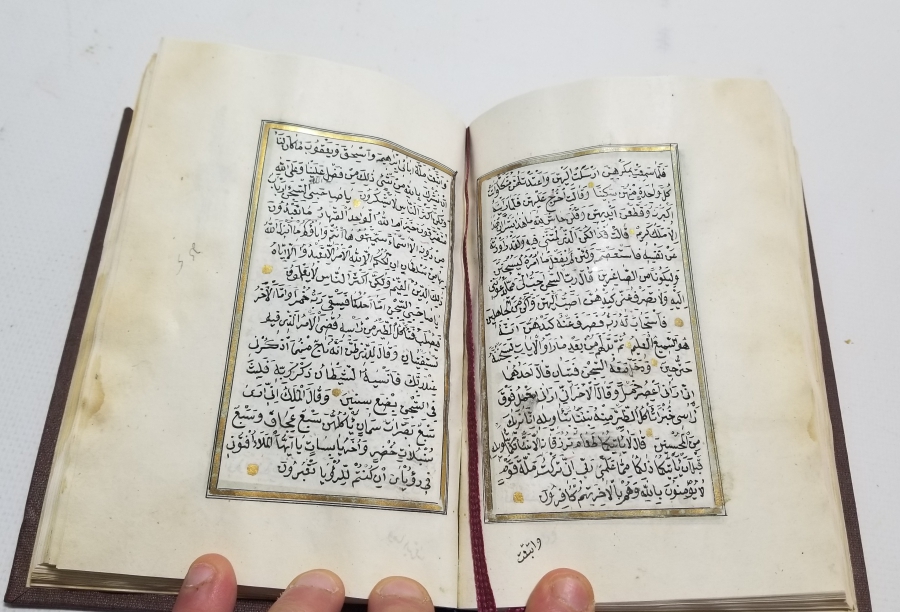 فلما سمعت بمكرهن ارسلت اليهن واعتدت لهن متكأ وآتت
كل واحدة منهن سكينا وقالت اخرج عليهن فلما راينه
اكبرنه وقطعن ايديهن وقلن حاش لله ما هذا بشرا ان هذا
الا ملك كريم قالت فذلكن الذي لمتنني فيه ولقد راودته
عن نفسه فاستعصم ولئن لم يفعل ما آمره ليسجنن
وليكونا من الصاغرين قال رب السجن احب الي مما يدعونني
اليه والا تصرف عني كيدهن اصب اليهن واكن من الجاهلين
فاستجاب له ربه فصرف عنه كيدهن انه
هو السميع العليم ثم بدا لهم من بعد ما راوا الايات ليسجننه
حتى حين ودخل معه السجن فتيان قال احدهما
اني اراني اعصر خمرا وقال الاخر اني اراني احمل فوق
راسي خبزا تاكل الطير منه نبئنا بتاويله انا نراك
من المحسنين قال لا ياتيكما طعام ترزقانه الا نباتكما بتاويله
قبل ان ياتيكما ذلكما مما علمني ربي اني تركت ملة قوم
لا يؤمنون بالله وهم بالاخرة هم كافرون
واتبعت
واتبعت ملة ابائي ابرهيم واسحق ويعقوب ما كان لنا
ان نشرك بالله من شئ ذلك من فضل الله علينا وعلى الناس
ولكن اكثر الناس لا يشكرون يا صاحبي السجن ءارباب
متفرقون خير ام الله الواحد القهار ما تعبدون
من دونه الا اسماء سميتموها انتم واباؤكم ما انزل الله
بها من سلطان ان الحكم الا لله امر الا تعبدوا الا اياه
ذلك الدين القيم ولكن اكثر الناس لا يعلمون
يا صاحبي السجن اما احدكما فيسقي ربه خمرا واما الاخر
فيصلب فتاكل الطير من راسه قضي الامر الذي فيه
تستفتيان وقال للذي ظن انه ناج منهما اذكرني
عند ربك فانسيه الشيطان ذكر ربه فلبث
في السجن بضع سنين وقال الملك اني ارى
سبع بقرات سمان ياكلهن سبع عجاف وسبع
سنبلات خضر واخر يابسات يا ايها الملا افتوني
في رؤياي ان كنتم للرؤيا تعبرون